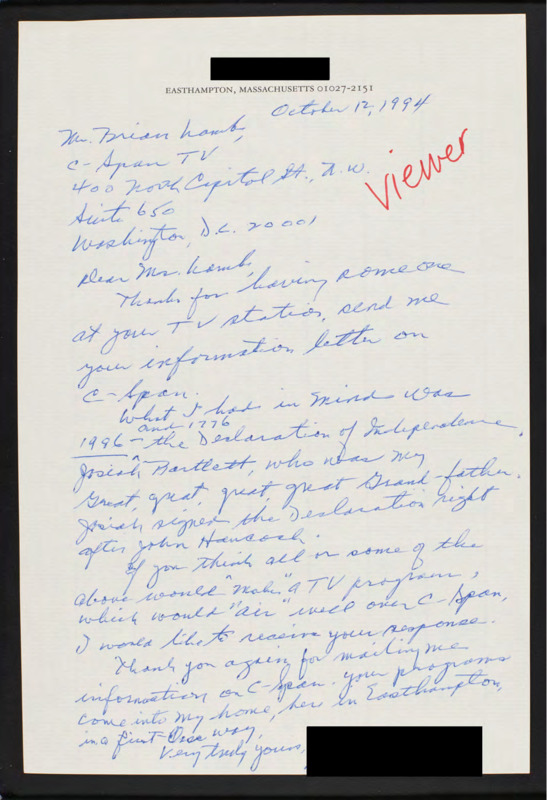 EASTHAMPTON, MASSACHUSETTS 01027-2151
October 12, 1994
Viewer
Mr. Brian Lamb,
C-Span TV
400 North Capitol St., N.W.
Suite 650
Washington, D.C. 20001
Dear Mr. Lamb,
Thanks for having someone
at your TV station, send me
your information letter on
C-Span.
What I had in mind was
and 1776
1996 - the Declaration of Independence.
Josiah Bartlett, who was my
Great, great, great, great Grand-father.
Josiah signed the Declaration right
after John Hancock.
If you think all or some of the
above would "make" a TV program,
which would "air" well over C-Span,
I would like to receive your response.
Thank you again for mailing me
information on C-Span. Your programs
come into my home, here in Easthampton,
in a first-class way.
Very truly yours,